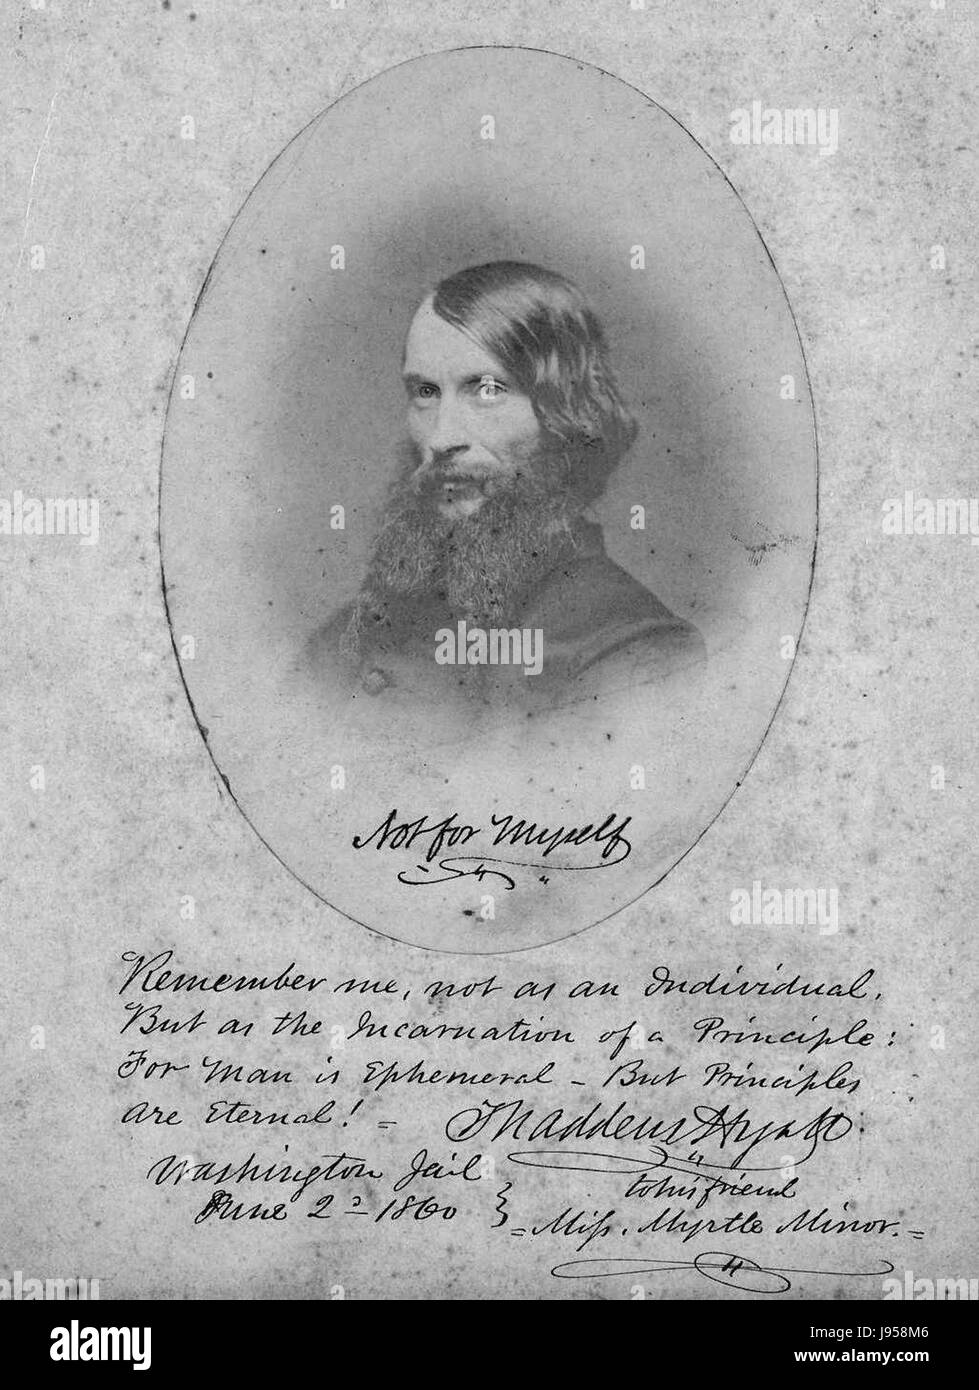 Not for Myself
Remember me, not as an Individual.
But as the Incarnation of a Principle:
For Man is Ephemeral - But Principles
are Eternal! - Thaddeus Hyatt.
Washington Jail
June 2d 1860
to his friend
= Miss. Myrtle Minor. =
alamy
Image ID: J958M6
www.alamy.com